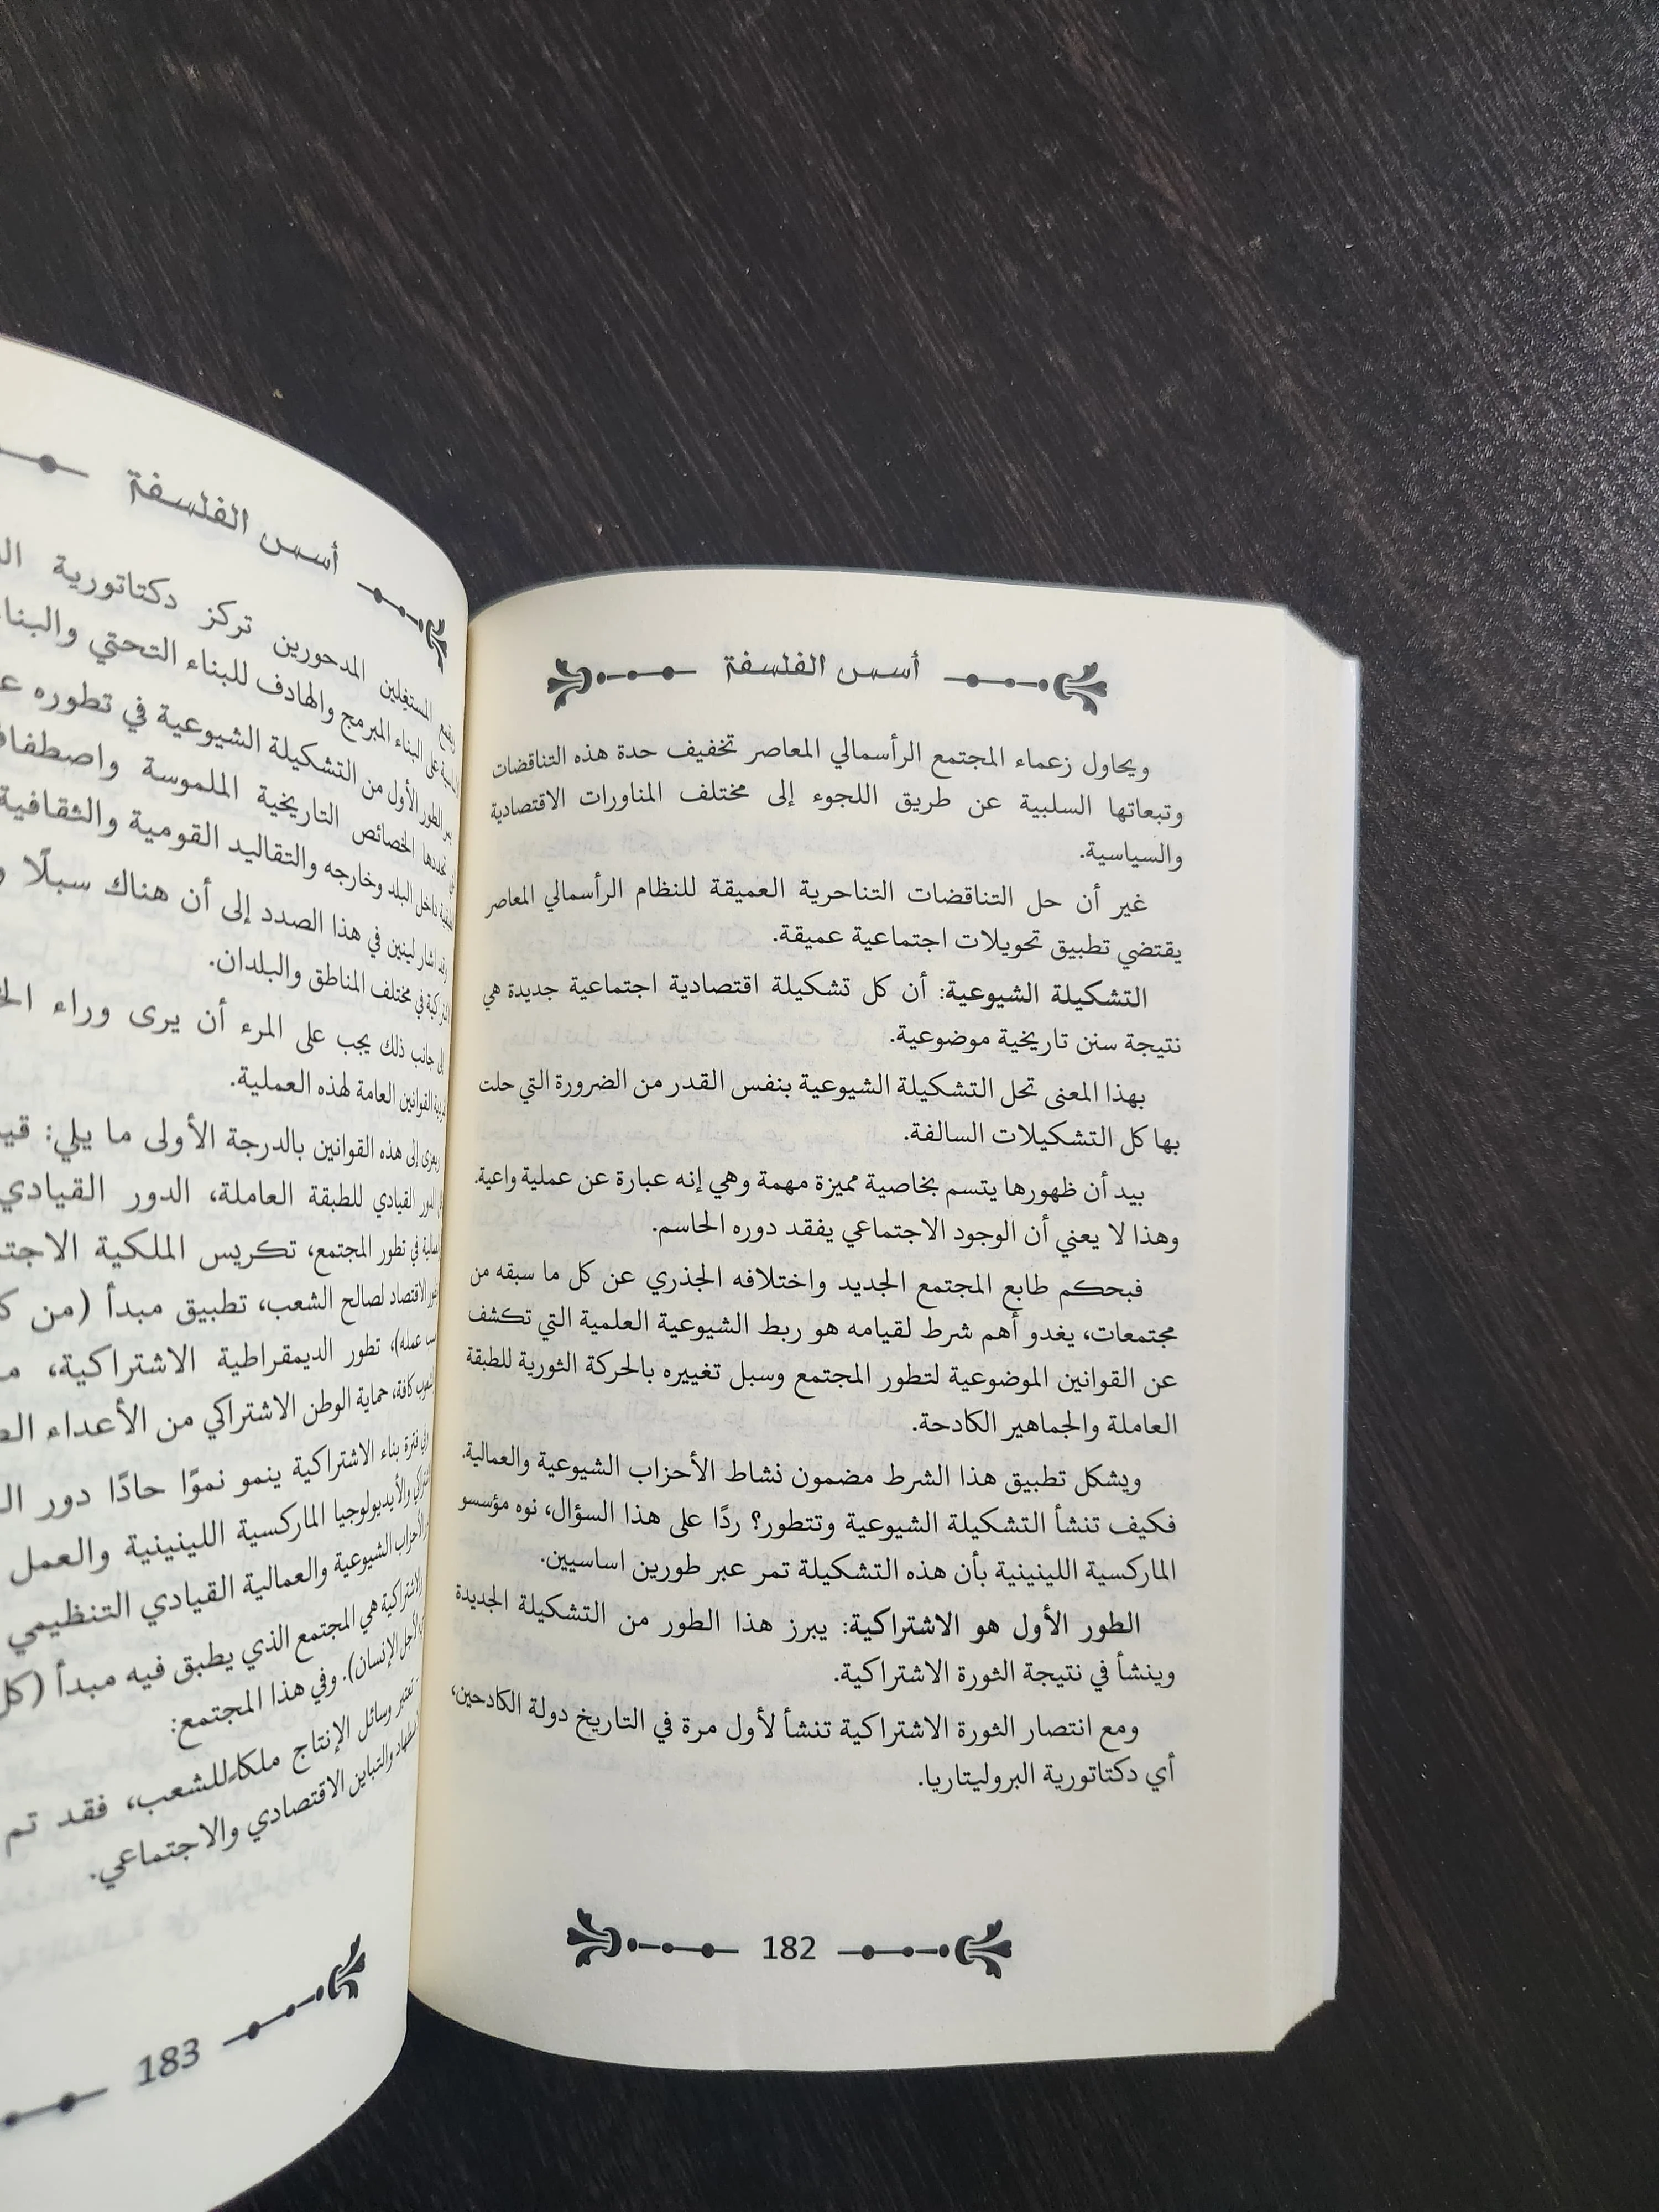 أسس الفلسفة
ويحاول زعماء المجتمع الرأسمالي المعاصر تخفيف حدة هذه التناقضات
وتبعاتها السلبية عن طريق اللجوء إلى مختلف المناورات الاقتصادية
والسياسية.
غير أن حل التناقضات التناحرية العميقة للنظام الرأسمالي المعاصر
يقتضي تطبيق تحويلات اجتماعية عميقة.
التشكيلة الشيوعية: أن كل تشكيلة اقتصادية اجتماعية جديدة هي
نتيجة سنن تاريخية موضوعية.
بهذا المعنى تحل التشكيلة الشيوعية بنفس القدر من الضرورة التي حلت
بها كل التشكيلات السالفة.
بيد أن ظهورها يتسم بخاصية مميزة مهمة وهي إنه عبارة عن عملية واعية.
وهذا لا يعني أن الوجود الاجتماعي يفقد دوره الحاسم.
فبحكم طابع المجتمع الجديد واختلافه الجذري عن كل ما سبقه من
مجتمعات، يغدو أهم شرط لقيامه هو ربط الشيوعية العلمية التي تكشف
عن القوانين الموضوعية لتطور المجتمع وسبل تغييره بالحركة الثورية للطبقة
العاملة والجماهير الكادحة.
ويشكل تطبيق هذا الشرط مضمون نشاط الأحزاب الشيوعية والعمالية.
فكيف تنشأ التشكيلة الشيوعية وتتطور؟ ردًا على هذا السؤال، نوه مؤسسو
الماركسية اللينينية بأن هذه التشكيلة تمر عبر طورين اساسيين.
الطور الأول هو الاشتراكية: يبرز هذا الطور من التشكيلة الجديدة
وينشأ في نتيجة الثورة الاشتراكية.
ومع انتصار الثورة الاشتراكية تنشأ لأول مرة في التاريخ دولة الكادحين،
أي دكتاتورية البروليتاريا.
182
أسس الفلسفة
المستغلين المدحورين تركز دكتاتورية
على البناء المبرمج والهادف للبناء التحتي
الطور الأول من التشكيلة الشيوعية في تطوره
تحددها الخصائص التاريخية الملموسة
داخل البلد وخارجه والتقاليد القومية والثقافية
أشار لينين في هذا الصدد إلى أن هناك سبلًا
في مختلف المناطق والبلدان.
جانب ذلك يجب على المرء أن يرى وراء
القوانين العامة لهذه العملية.
إلى هذه القوانين بالدرجة الأولى ما يلي:
القيادي للطبقة العاملة، الدور القيادي
في تطور المجتمع، تكريس الملكية
الاقتصاد لصالح الشعب، تطبيق مبدأ (من
عمله)، تطور الديمقراطية الاشتراكية،
كافة، حماية الوطن الاشتراكي من الأعداء
فترة بناء الاشتراكية ينمو نموًا حادًا دور
والأيديولوجيا الماركسية اللينينية والعمل
الشيوعية والعمالية القيادي التنظيمي
هي المجتمع الذي يطبق فيه مبدأ (كل
لأجل الإنسان). وفي هذا المجتمع:
تعتبر وسائل الإنتاج ملكا للشعب، فقد تم
والتباين الاقتصادي والاجتماعي.
183